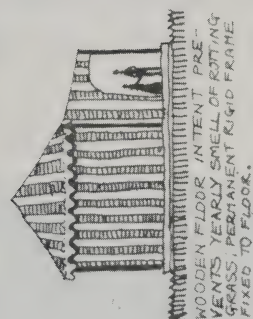 WOODEN FLOOR INTENT PRE-
VENTS YEARLY SMELL OF ROTTING
GRASS; PERMANENT RIGID FRAME
FIXED TO FLOOR.